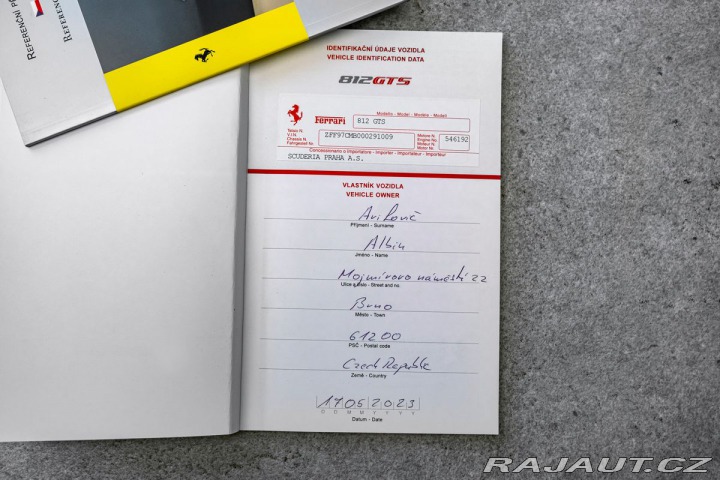 REFERENČNÍ
REFEREN
IDENTIFIKAČNÍ ÚDAJE VOZIDLA
VEHICLE IDENTIFICATION DATA
812GTS
Ferrari
Modello - Model - Modèle - Modell
812 GTS
Telaio N.
V.I.N.
Chassis N.
Fahrgestell Nr.
ZFF97CMB000291009
Motore N.
Engine No.
Moteur N.
Motor Nr.
546192
Concessionario o Importatore - Importer - Importateur - Importeur
SCUDERIA PRAHA A.S.
VLASTNÍK VOZIDLA
VEHICLE OWNER
Příjmení - Surname
Albin
Jméno - Name
Mojmírovo náměstí 22
Ulice a číslo - Street and no
Brno
Město - Town
61200
PSČ - Postal code
Czech Republic
Země - Country
17052023
D D M M Y Y Y Y
Datum - Date
RAJAUT.CZ